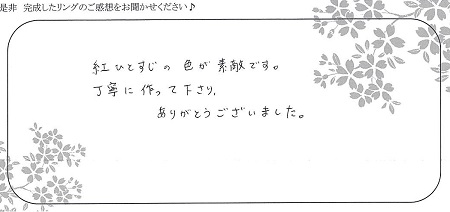 是非 完成したリングのご感想をお聞かせください♪
紅ひとすじの 色が素敵です。
丁寧に作って下さり、
ありがとうございました。